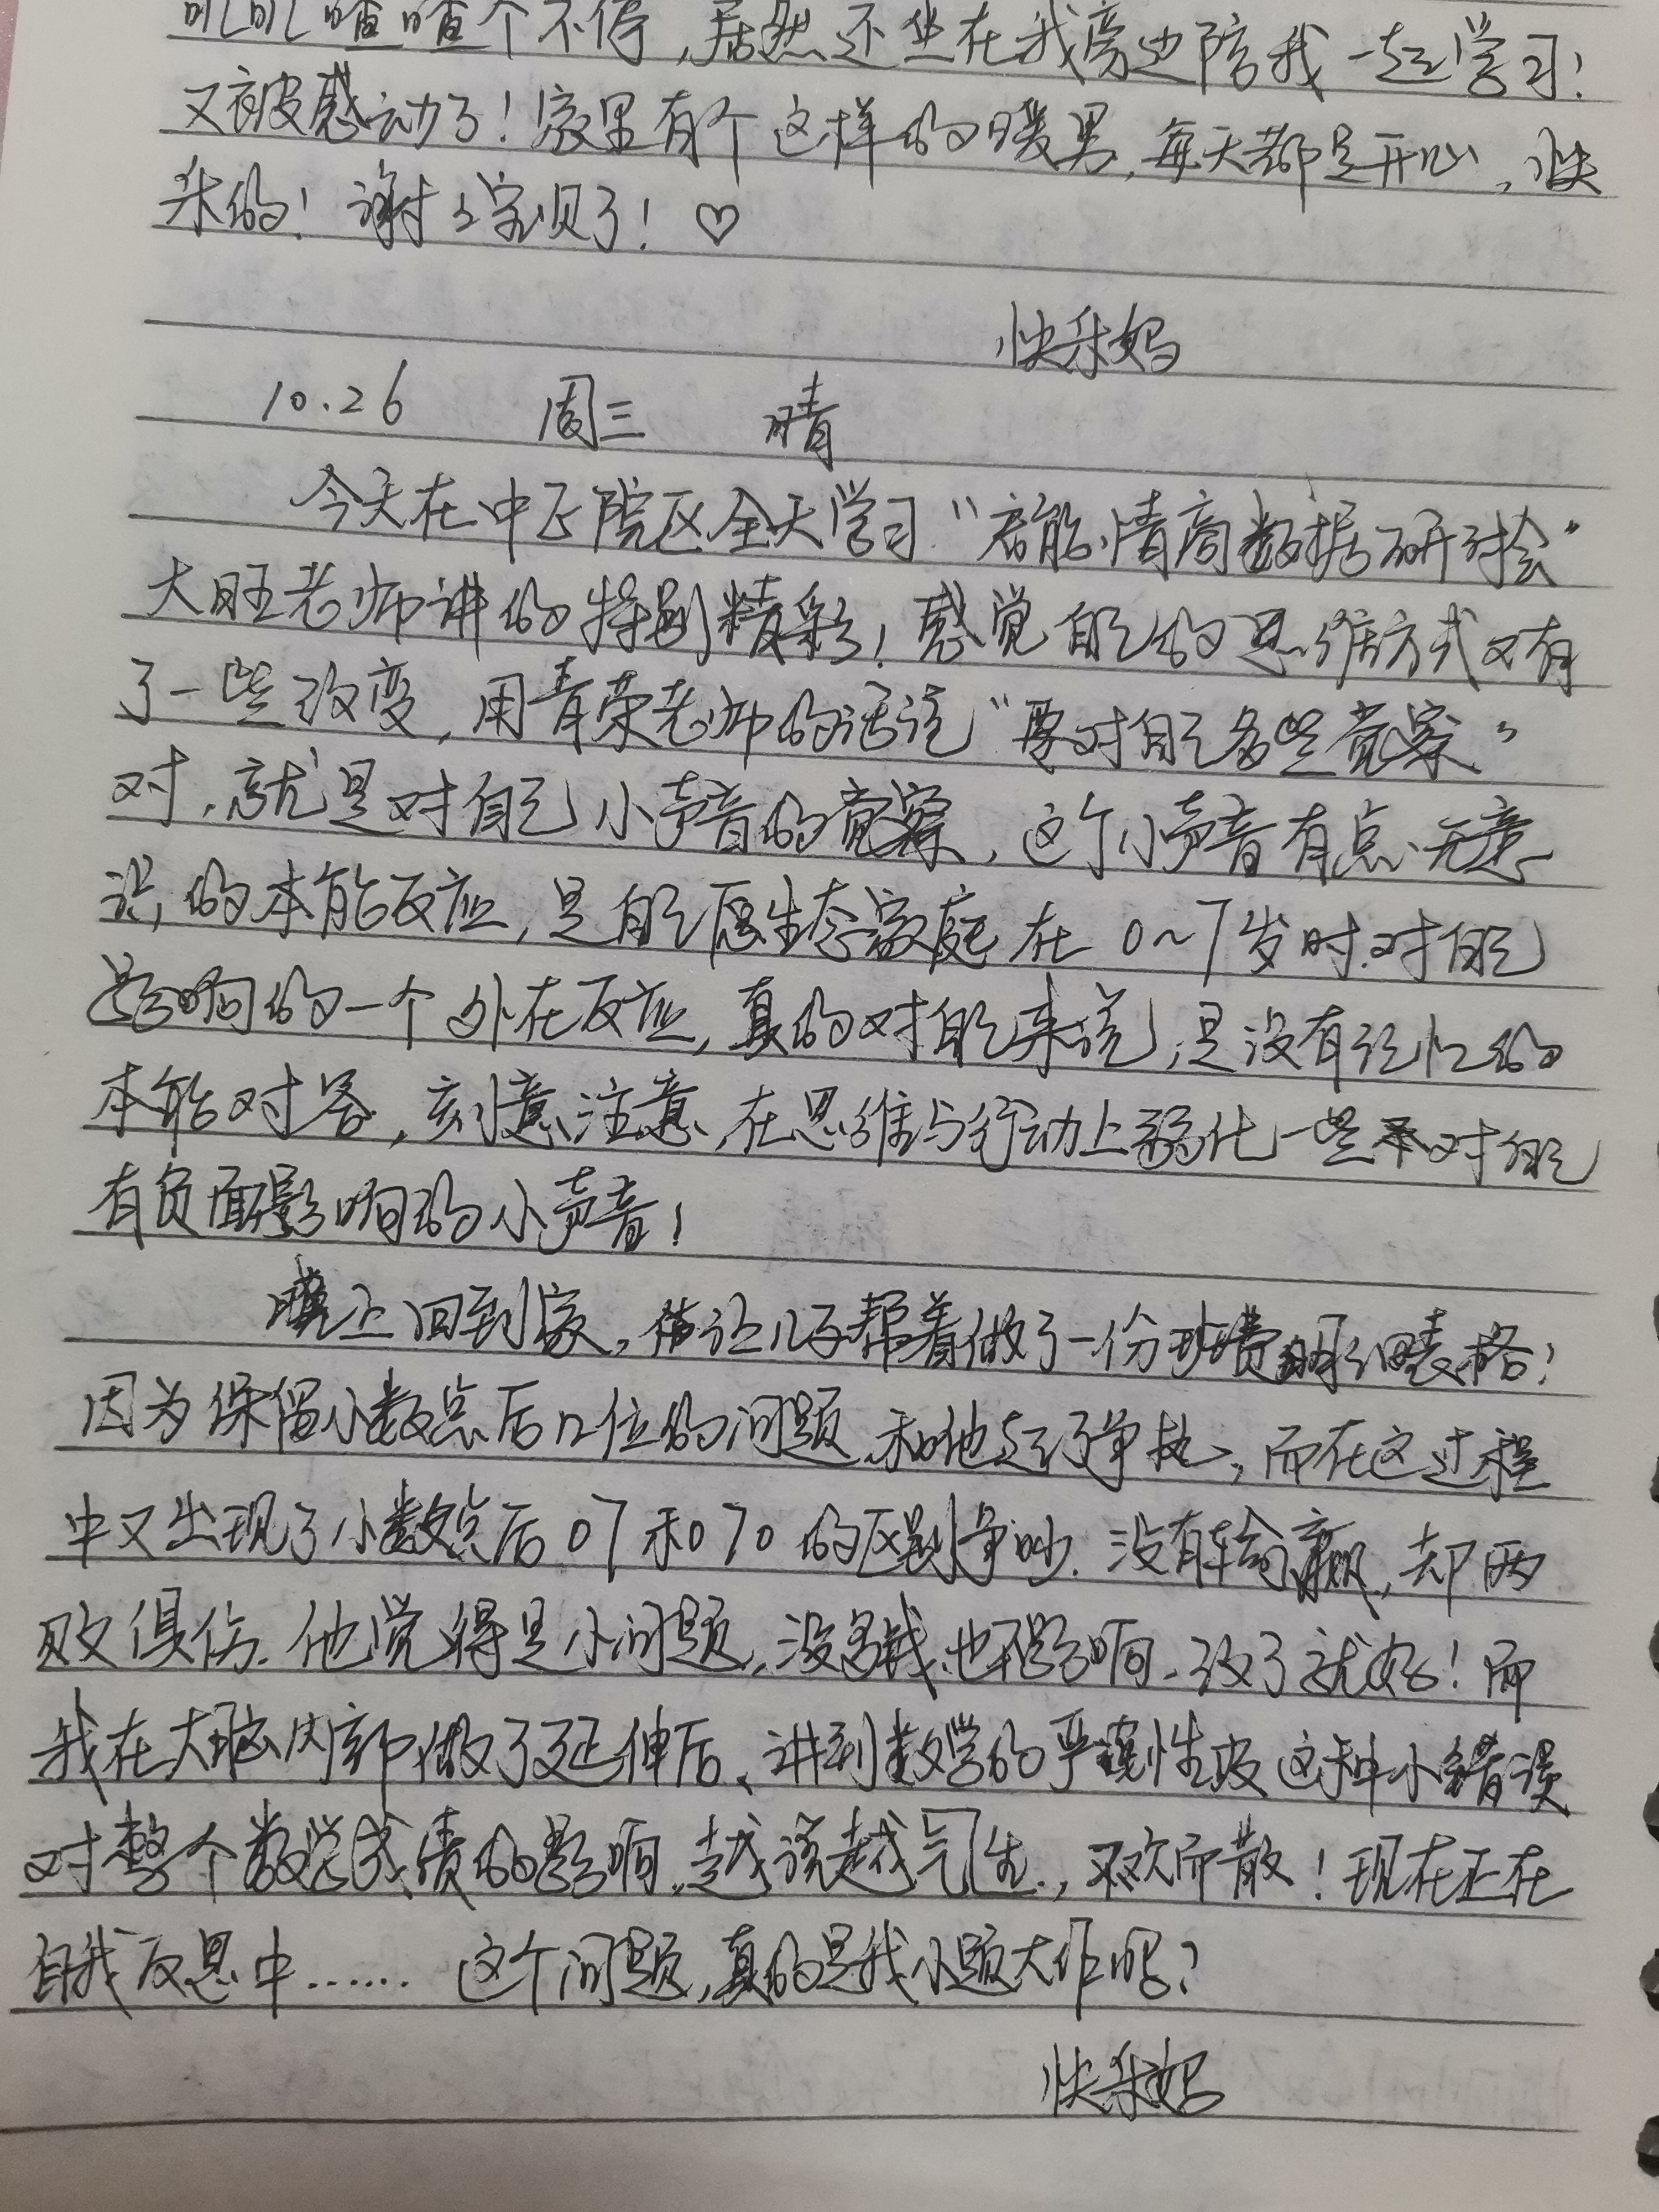 叽叽喳喳个不停，居然还坐在我旁边陪我一起学习！
又被感动了！家里有个这样的暖男，每天都是开心、快
乐的！谢谢宝贝了！♡
快乐妈
10.26 周三 晴
今天在中正院区全天学习“君能情商数据研讨会”
大旺老师讲的特别精彩！感觉自己的思维方式又有
了一些改变，用青荣老师的话说“要对自己多些觉察”
对，就是对自己小声音的觉察，这个小声音有点无意
识的本能反应，是自己原生态家庭在0~7岁时对自己
影响的一个外在反应，真的对自己来说，是没有记忆的
本能对答，刻意注意，在思维与行动上弱化一些对自己
有负面影响的小声音！
晚上回到家，让儿子帮着做了一份班费明细表格！
因为保留小数点后几位的问题，和他起了争执，而在这过程
中又出现了小数点后07和070的区别争吵．没有输赢，却两
败俱伤．他觉得是小问题，没多钱，也不影响，改了就好！而
我在大脑内部做了延伸后、讲到数学的严谨性及这种小错误
对整个数学成绩的影响，越说越气生，不欢而散！现在正在
自我反思中…… 这个问题，真的是我小题大作吧？
快乐妈